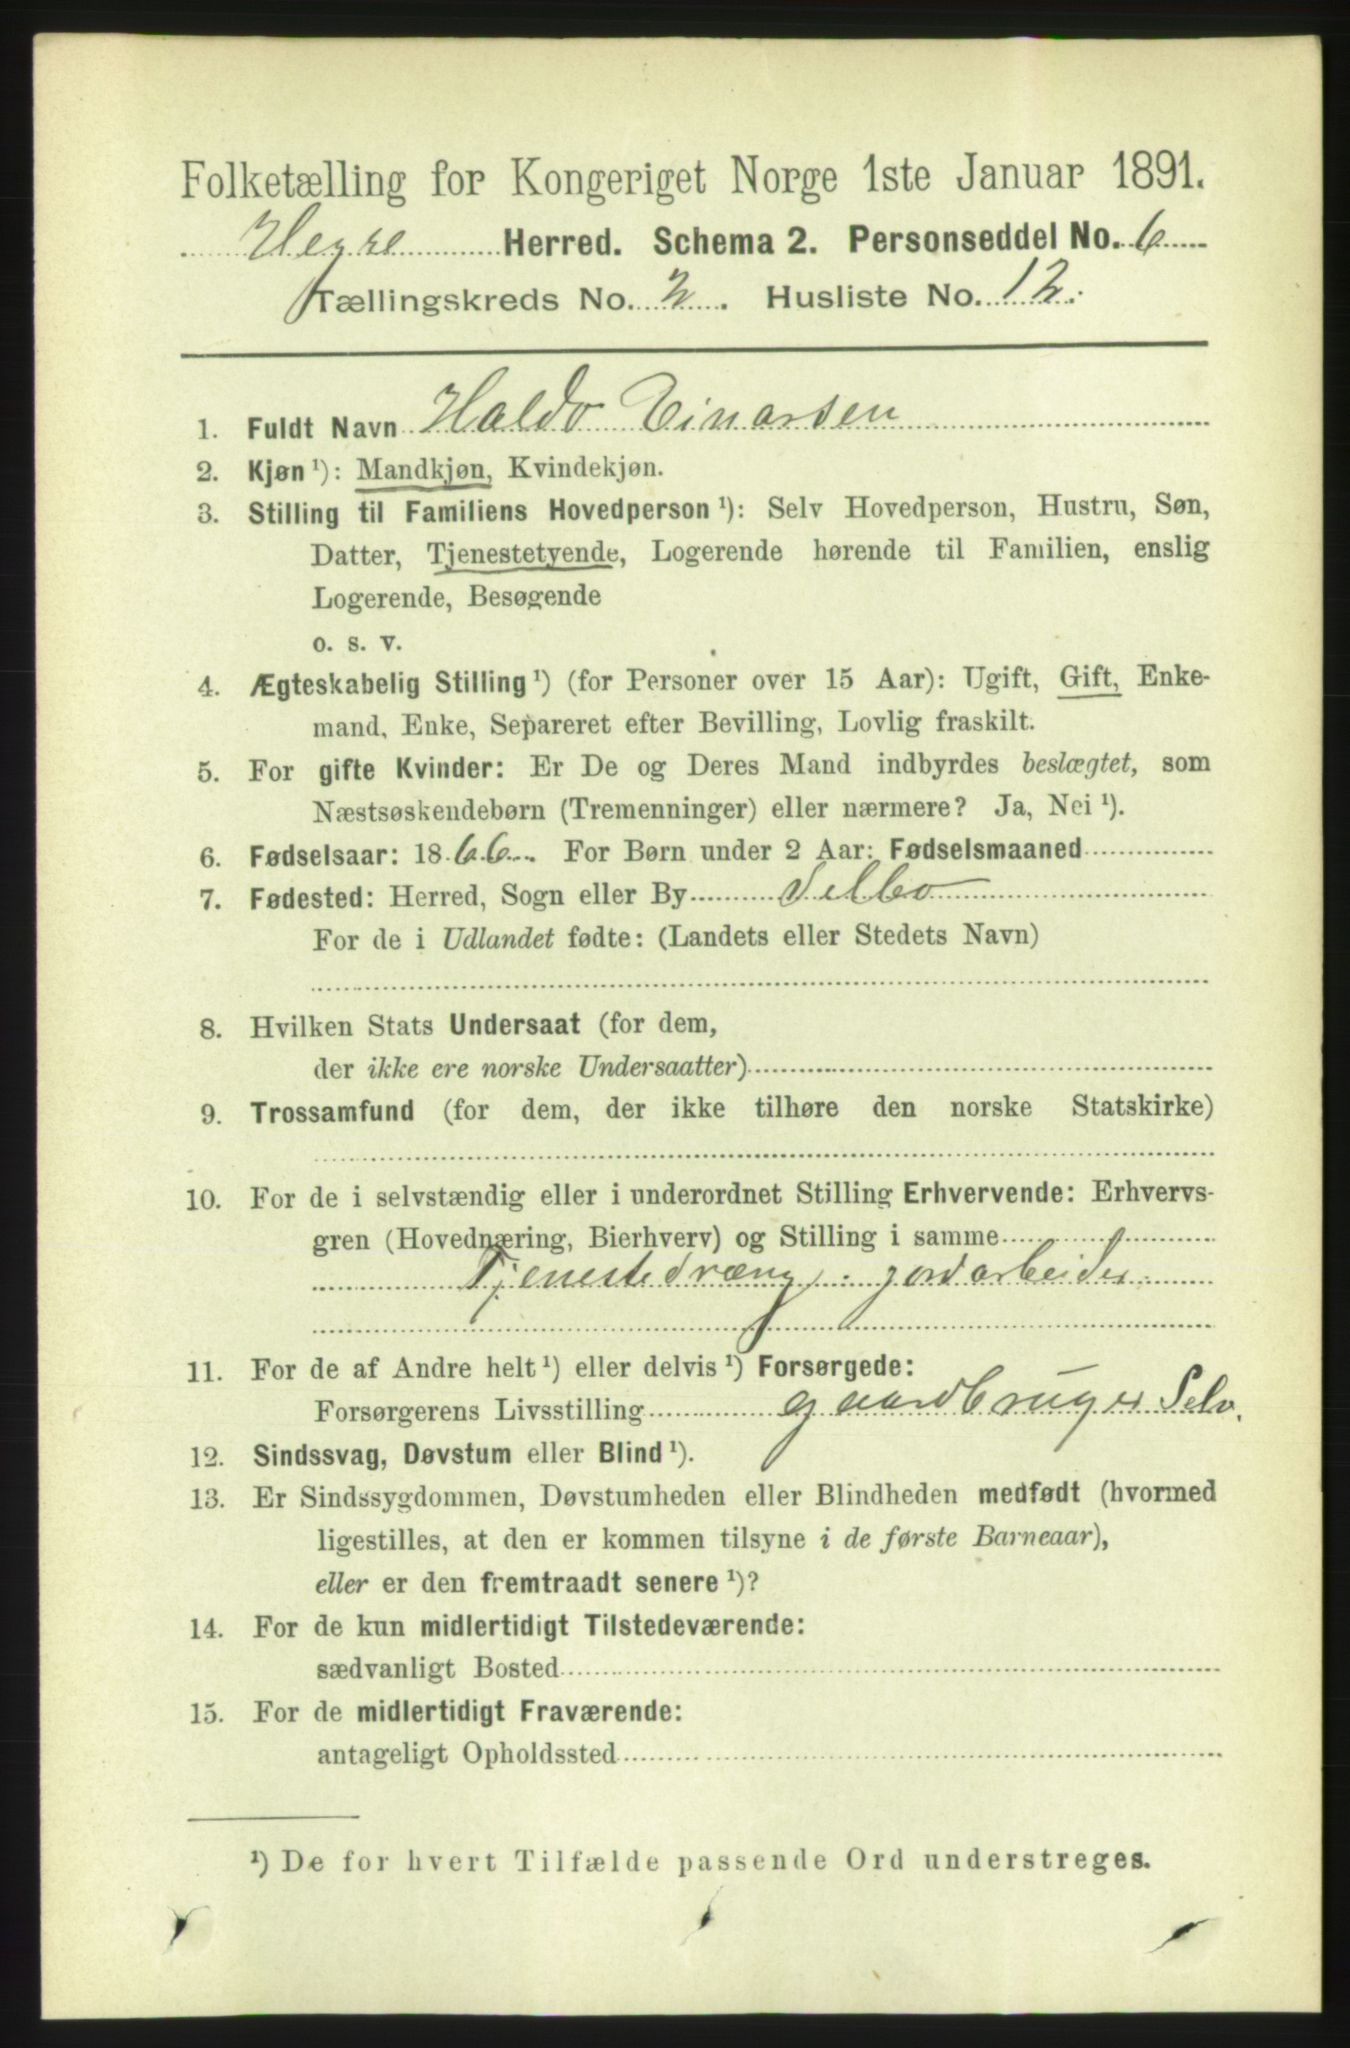 Folketælling for Kongeriget Norge 1ste Januar 1891.
Hegre Herred. Schema 2. Personseddel No. 6
Tællingskreds No. 2. Husliste No. 12.
1. Fuldt Navn Haldo Einarsen
2. Kjøn ¹): Mandkjøn, Kvindekjøn.
3. Stilling til Familiens Hovedperson ¹): Selv Hovedperson, Hustru, Søn,
Datter, Tjenestetyende, Logerende hørende til Familien, enslig
Logerende, Besøgende
o. s. v.
4. Ægteskabelig Stilling ¹) (for Personer over 15 Aar): Ugift, Gift, Enke-
mand, Enke, Separeret efter Bevilling, Lovlig fraskilt.
5. For gifte Kvinder: Er De og Deres Mand indbyrdes beslægtet, som
Næstsøskendebørn (Tremenninger) eller nærmere? Ja, Nei ¹).
6. Fødselsaar: 1866. For Børn under 2 Aar: Fødselsmaaned
7. Fødested: Herred, Sogn eller By Selbo
For de i Udlandet fødte: (Landets eller Stedets Navn)
8. Hvilken Stats Undersaat (for dem,
der ikke ere norske Undersaatter)
9. Trossamfund (for dem, der ikke tilhøre den norske Statskirke)
10. For de i selvstændig eller i underordnet Stilling Erhvervende: Erhvervs-
gren (Hovednæring, Bierhverv) og Stilling i samme
Tjenestedræng. jordarbeider
11. For de af Andre helt ¹) eller delvis ¹) Forsørgede:
Forsørgerens Livsstilling gaardbruger Selv.
12. Sindssvag, Døvstum eller Blind ¹).
13. Er Sindssygdommen, Døvstumheden eller Blindheden medfødt (hvormed
ligestilles, at den er kommen tilsyne i de første Barneaar),
eller er den fremtraadt senere ¹)?
14. For de kun midlertidigt Tilstedeværende:
sædvanligt Bosted
15. For de midlertidigt Fraværende:
antageligt Opholdssted
¹) De for hvert Tilfælde passende Ord understreges.